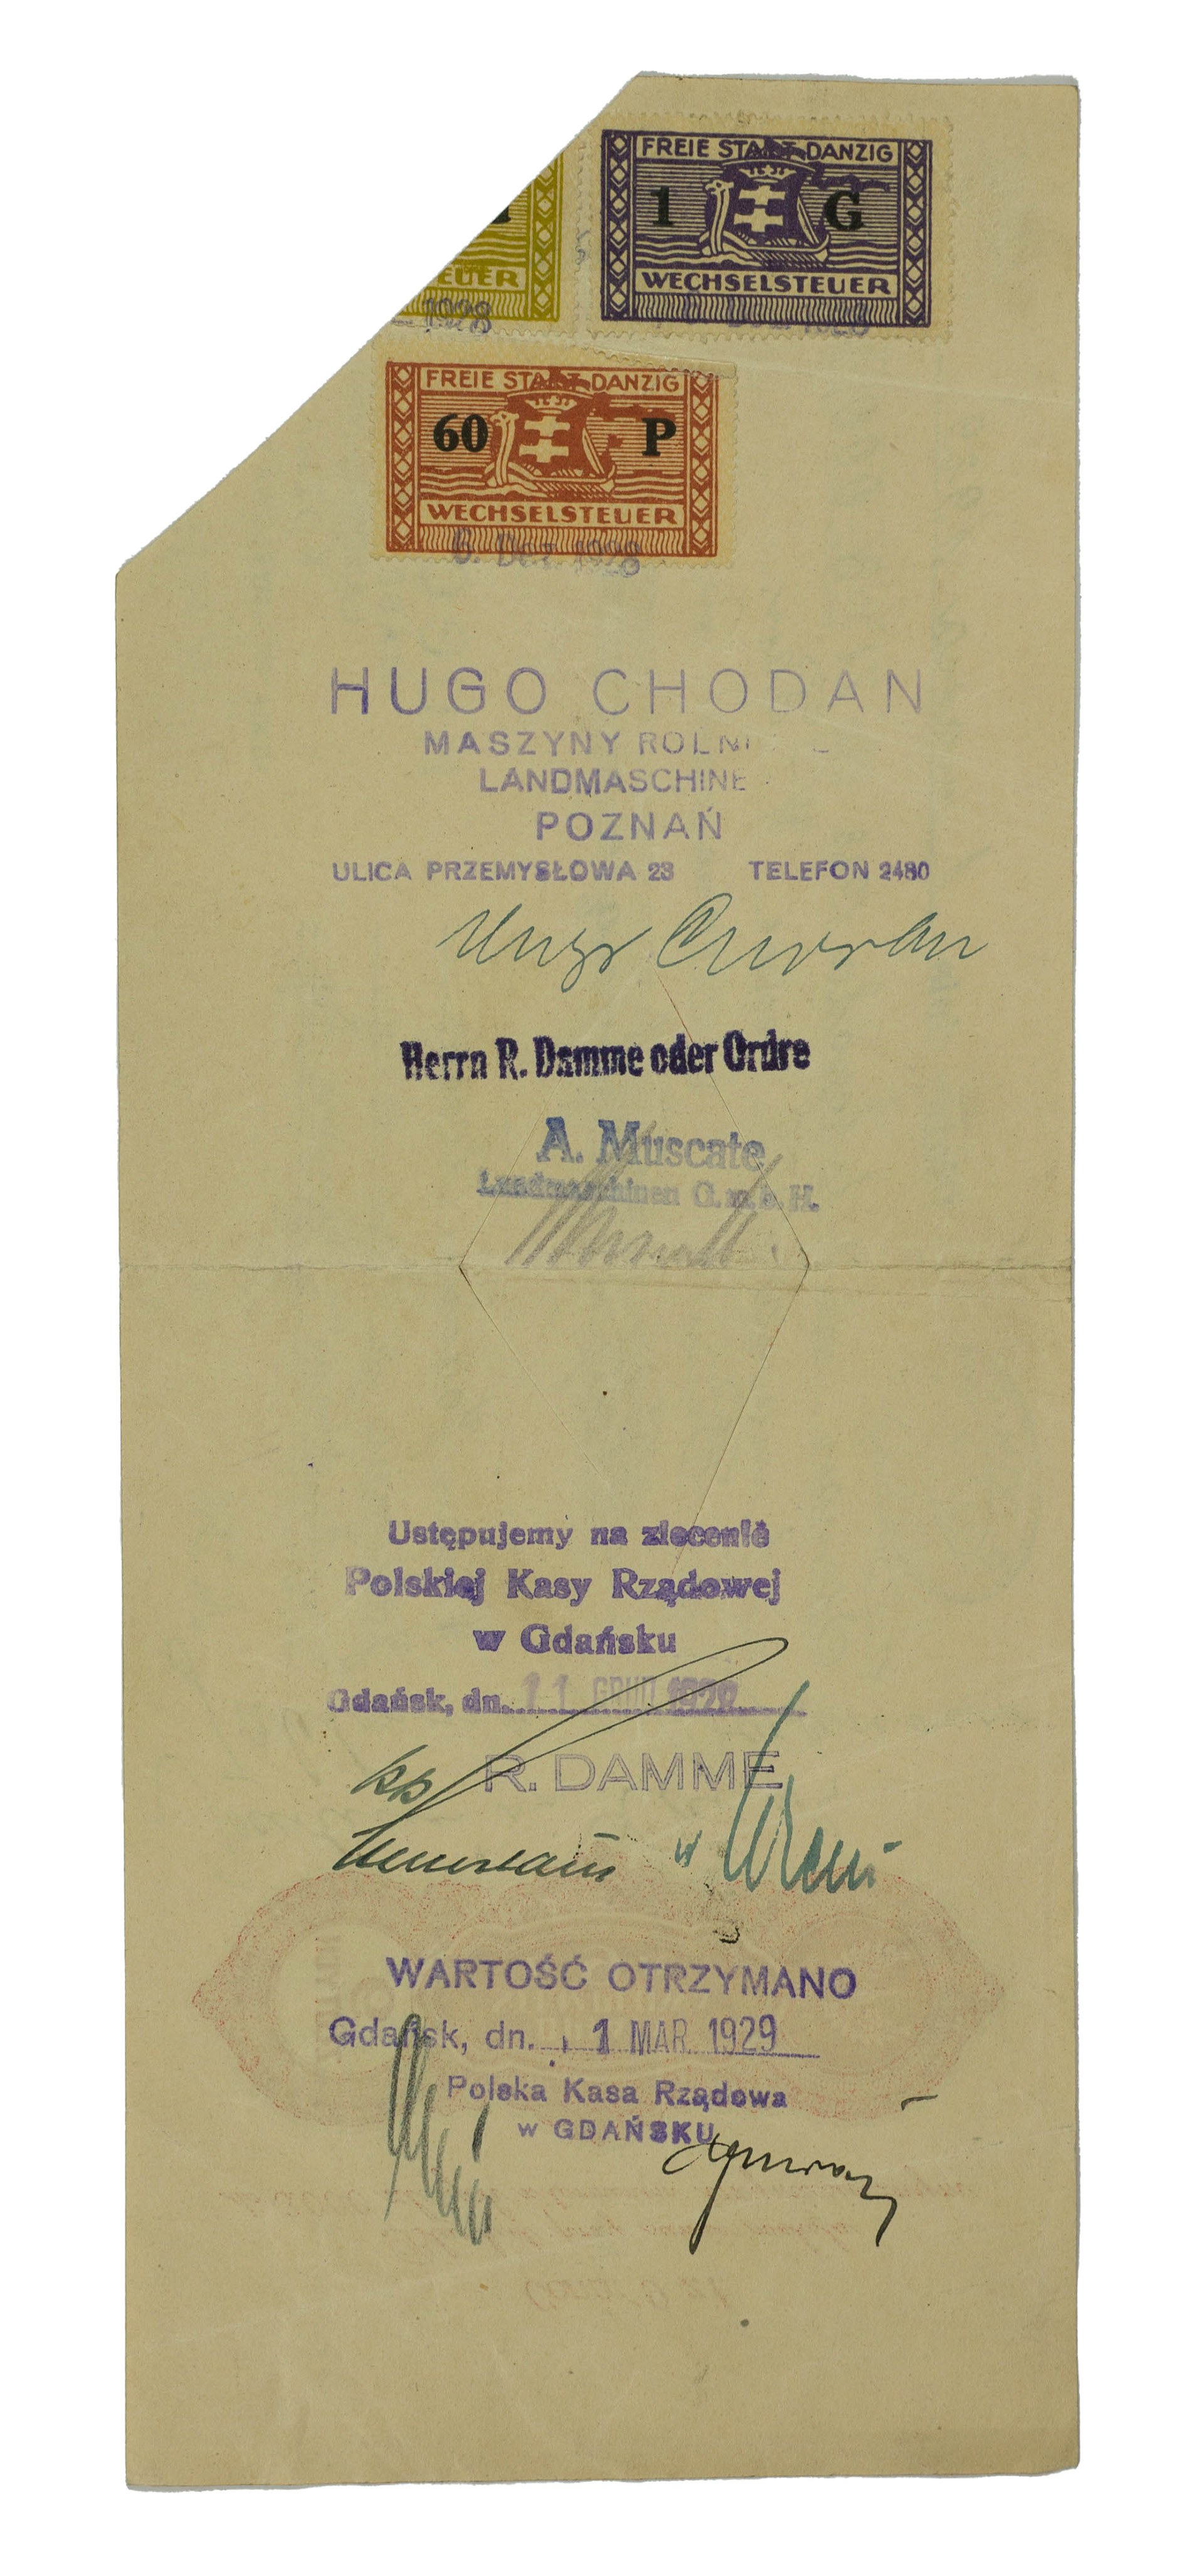 FREIE STAAT DANZIG
1 G
WECHSELSTEUER
EUER
1928
1928
FREIE STAAT DANZIG
60 P
WECHSELSTEUER
6. Dez. 1928
HUGO CHODAN
MASZYNY ROLNI
LANDMASCHINE
POZNAŃ
ULICA PRZEMYSŁOWA 23 TELEFON 2480
Hugo Chodan
Herrn R. Damme oder Ordre
A. Muscate
Landmaschinen G.m.b.H.
Ustępujemy na zlecenie
Polskiej Kasy Rządowej
w Gdańsku
Gdańsk, dn. 11 GRUD 1928
pp R. DAMME
WARTOŚĆ OTRZYMANO
Gdańsk, dn. 1 MAR. 1929
Polska Kasa Rządowa
w GDAŃSKU